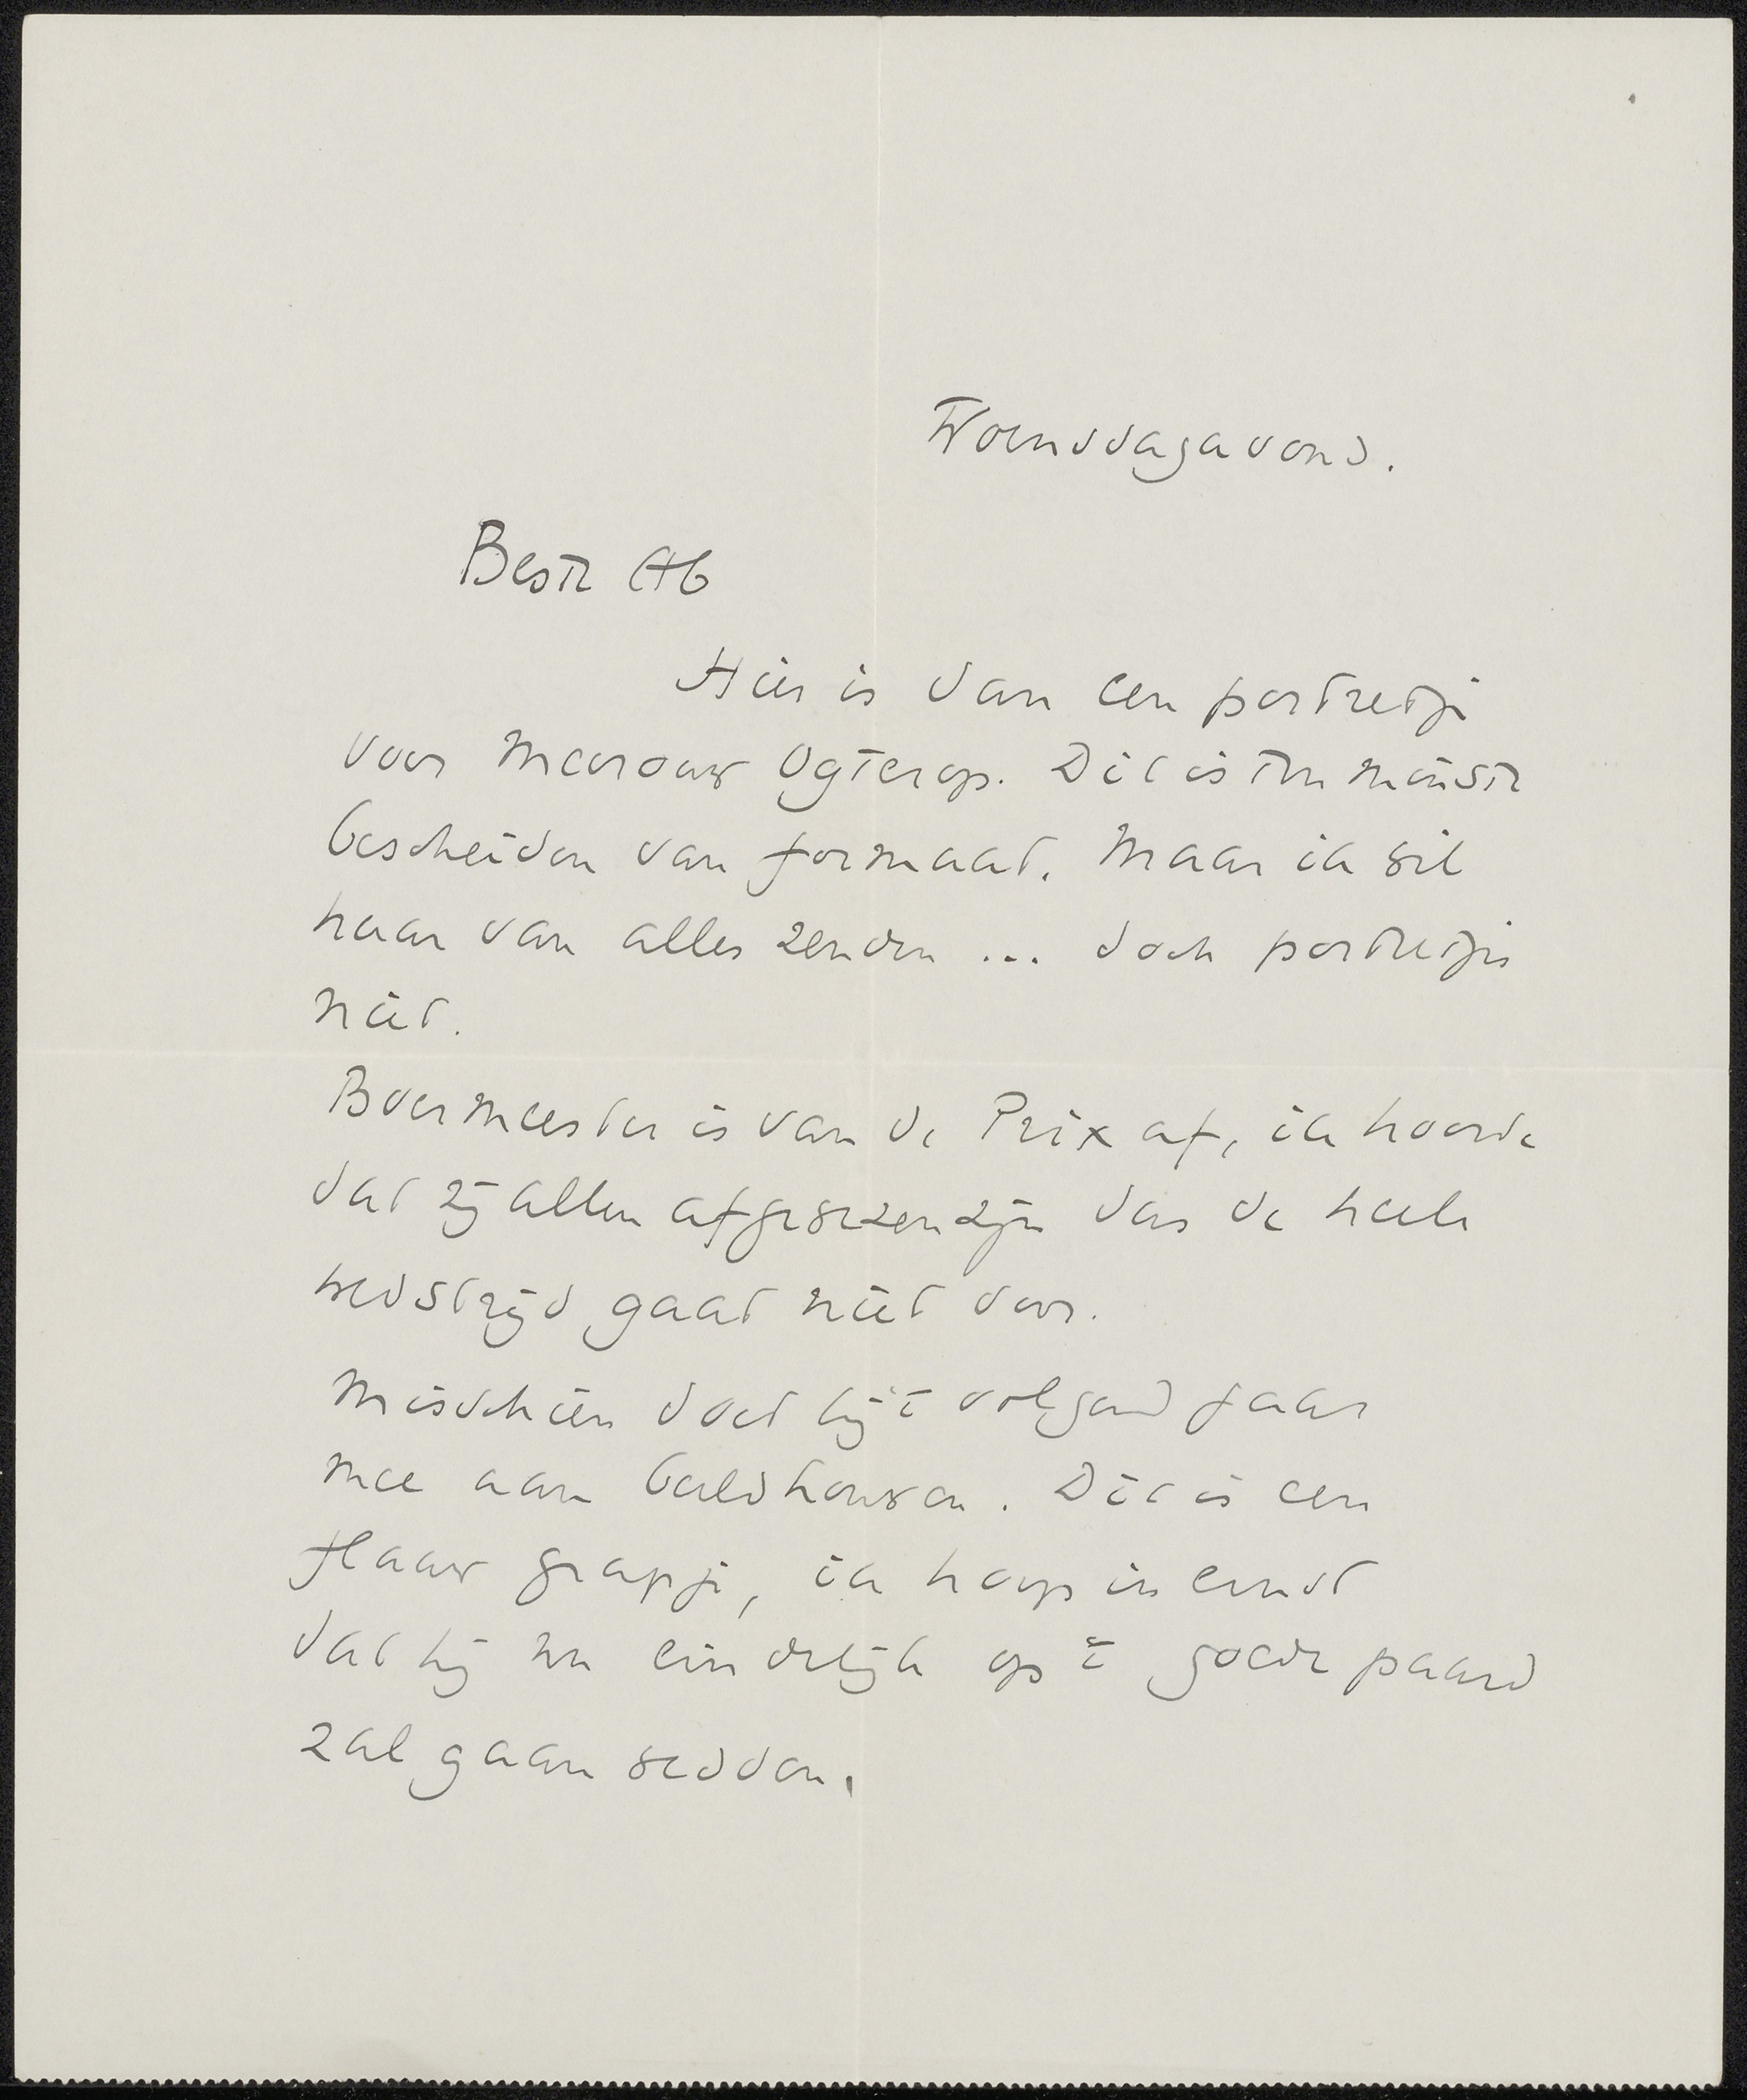 Woensdagavond.
Beste Ab
Hier is dan een portretje
voor Mevrouw Ogterop. Dit is ten minste
bescheiden van formaat. Maar ik wil
haar van alles zenden ... doch portretjes
niet.
Boermeester is van de Prix af, ik hoorde
dat zij allen afgewezen zijn dus de heele
wedstrijd gaat niet door.
Misschien doet hij 't volgend jaar
mee aan beeldhouwen. Dit is een
flauw grapje, ik hoop in ernst
dat hij nu eindelijk op 't goede paard
zal gaan wedden.